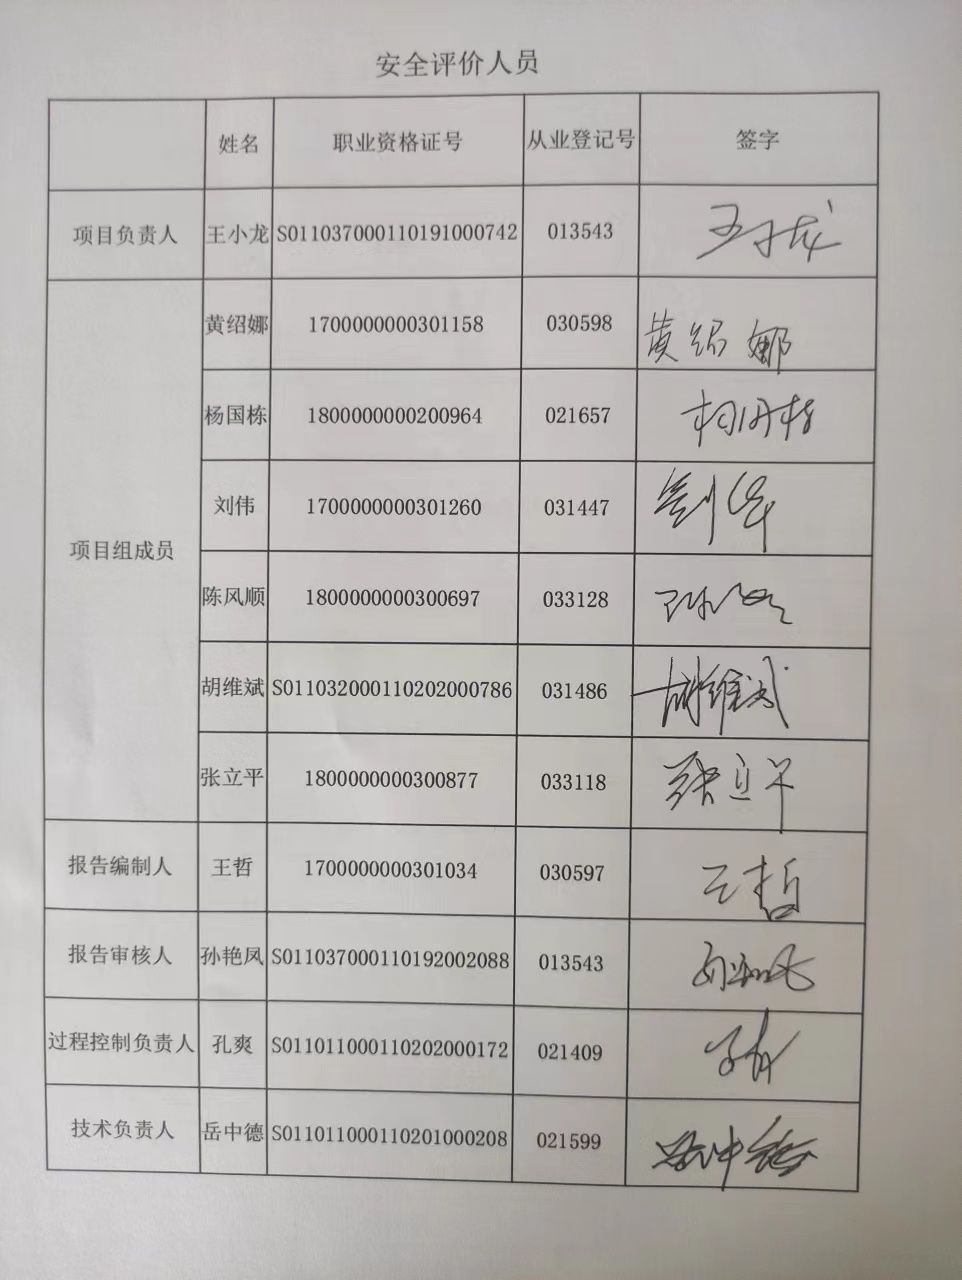 安全评价人员
姓名 职业资格证号 从业登记号 签字
项目负责人 王小龙 S011037000110191000742 013543 王小龙
项目组成员
黄绍娜 1700000000301158 030598 黄绍娜
杨国栋 1800000000200964 021657 杨国栋
刘伟 1700000000301260 031447 刘伟
陈风顺 1800000000300697 033128
胡维斌 S011032000110202000786 031486 胡维斌
张立平 1800000000300877 033118 张立平
报告编制人 王哲 1700000000301034 030597 王哲
报告审核人 孙艳凤 S011037000110192002088 013543
过程控制负责人 孔爽 S011011000110202000172 021409
技术负责人 岳中德 S011011000110201000208 021599 岳中德